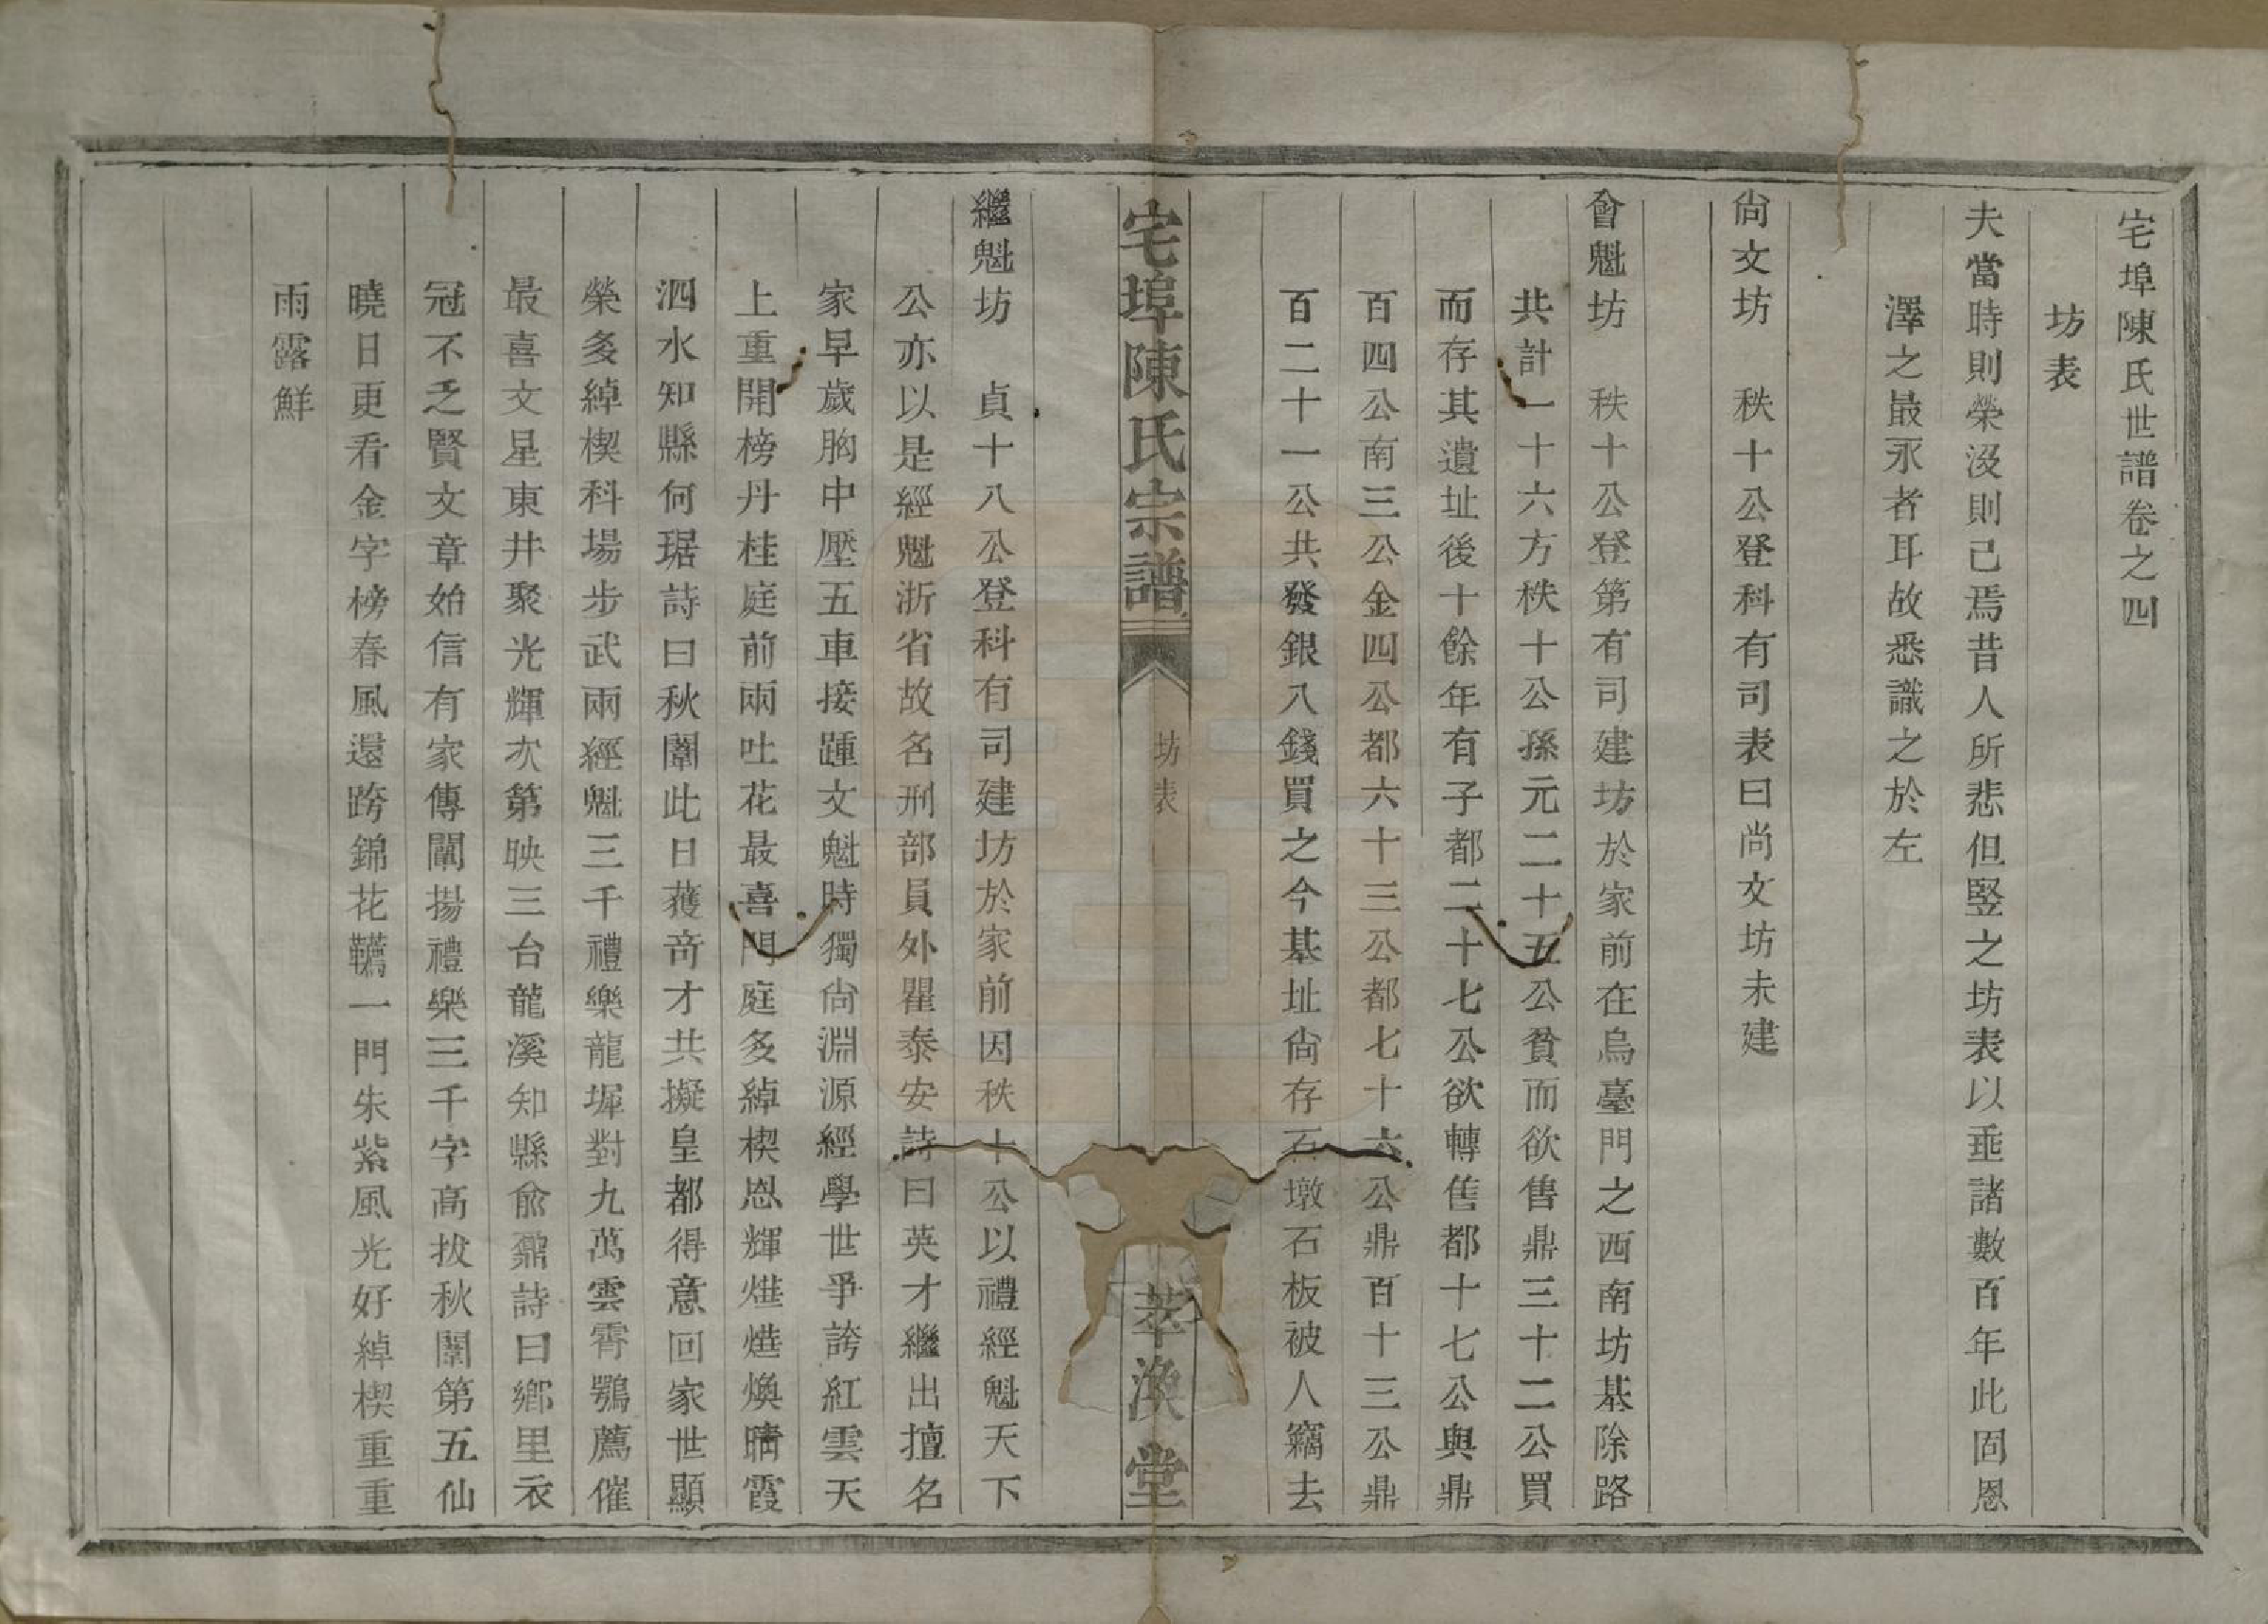 宅埠陳氏世譜卷之四
坊表
夫當時則榮沒則已焉昔人所悲但竪之坊表以垂諸數百年此固恩
澤之最永者耳故悉識之於左
尙文坊　秩十公登科有司表曰尙文坊未建
會魁坊　秩十公登第有司建坊於家前在烏臺門之西南坊基除路
共計一十六方秩十公孫元二十五公貧而欲售鼎三十二公買
而存其遺址後十餘年有子都二十七公欲轉售都十七公與鼎
百四公南三公金四公都六十三公都七十六公鼎百十三公鼎
百二十一公共發銀八錢買之今基址尙存石墩石板被人竊去
宅埠陳氏宗譜
坊表
萃渙堂
繼魁坊　貞十八公登科有司建坊於家前因秩十公以禮經魁天下
公亦以是經魁浙省故名刑部員外瞿泰安詩曰英才繼出擅名
家早歲胸中壓五車接踵文魁時獨尙淵源經學世爭誇紅雲天
上重開榜丹桂庭前兩吐花最喜門庭多綽楔恩輝燁燁煥晴霞
泗水知縣何琚詩曰秋闈此日獲奇才共擬皇都得意回家世顯
榮多綽楔科場步武兩經魁三千禮樂龍墀對九萬雲霄鶚薦催
最喜文星東井聚光輝次第映三台龍溪知縣俞鼐詩曰鄉里衣
冠不乏賢文章始信有家傳闡揚禮樂三千字高拔秋闈第五仙
曉日更看金字榜春風還跨錦花韉一門朱紫風光好綽楔重重
雨露鮮